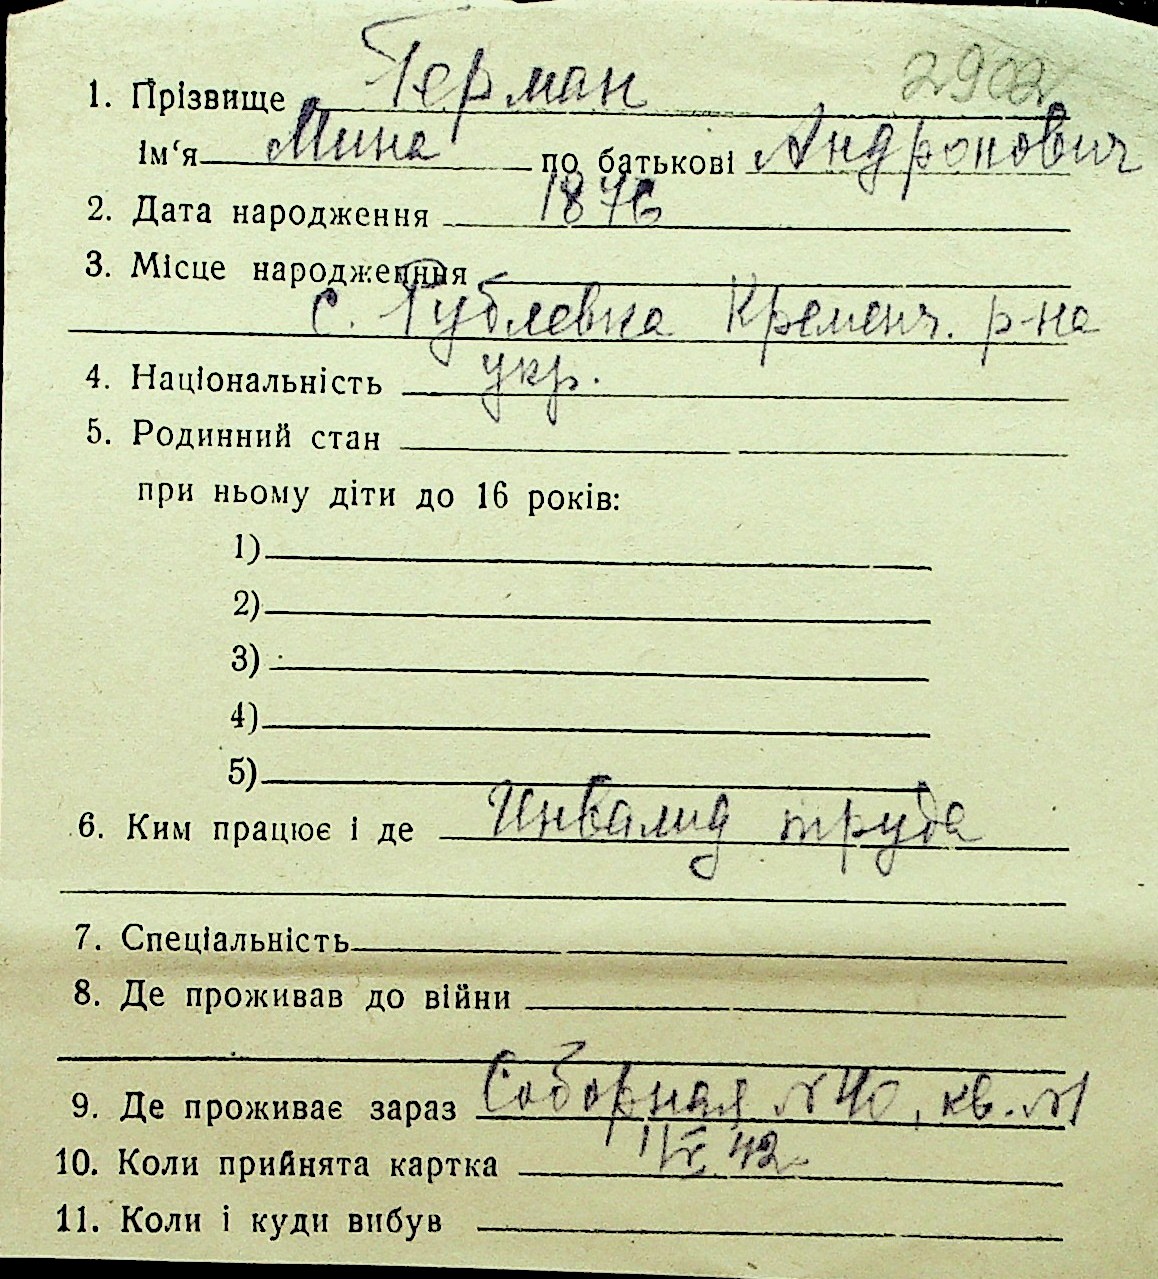 2902
1. Прізвище Герман
ім'я Мина по батькові Андронович
2. Дата народження 1876
3. Місце народженння
с. Рублевка Кременч. р-на
4. Національність укр.
5. Родинний стан
при ньому діти до 16 років:
1)
2)
3)
4)
5)
6. Ким працює і де Инвалид труда
7. Спеціальність
8. Де проживав до війни
9. Де проживає зараз Соборная №40, кв. №1
10. Коли прийнята картка 42
11. Коли і куди вибув